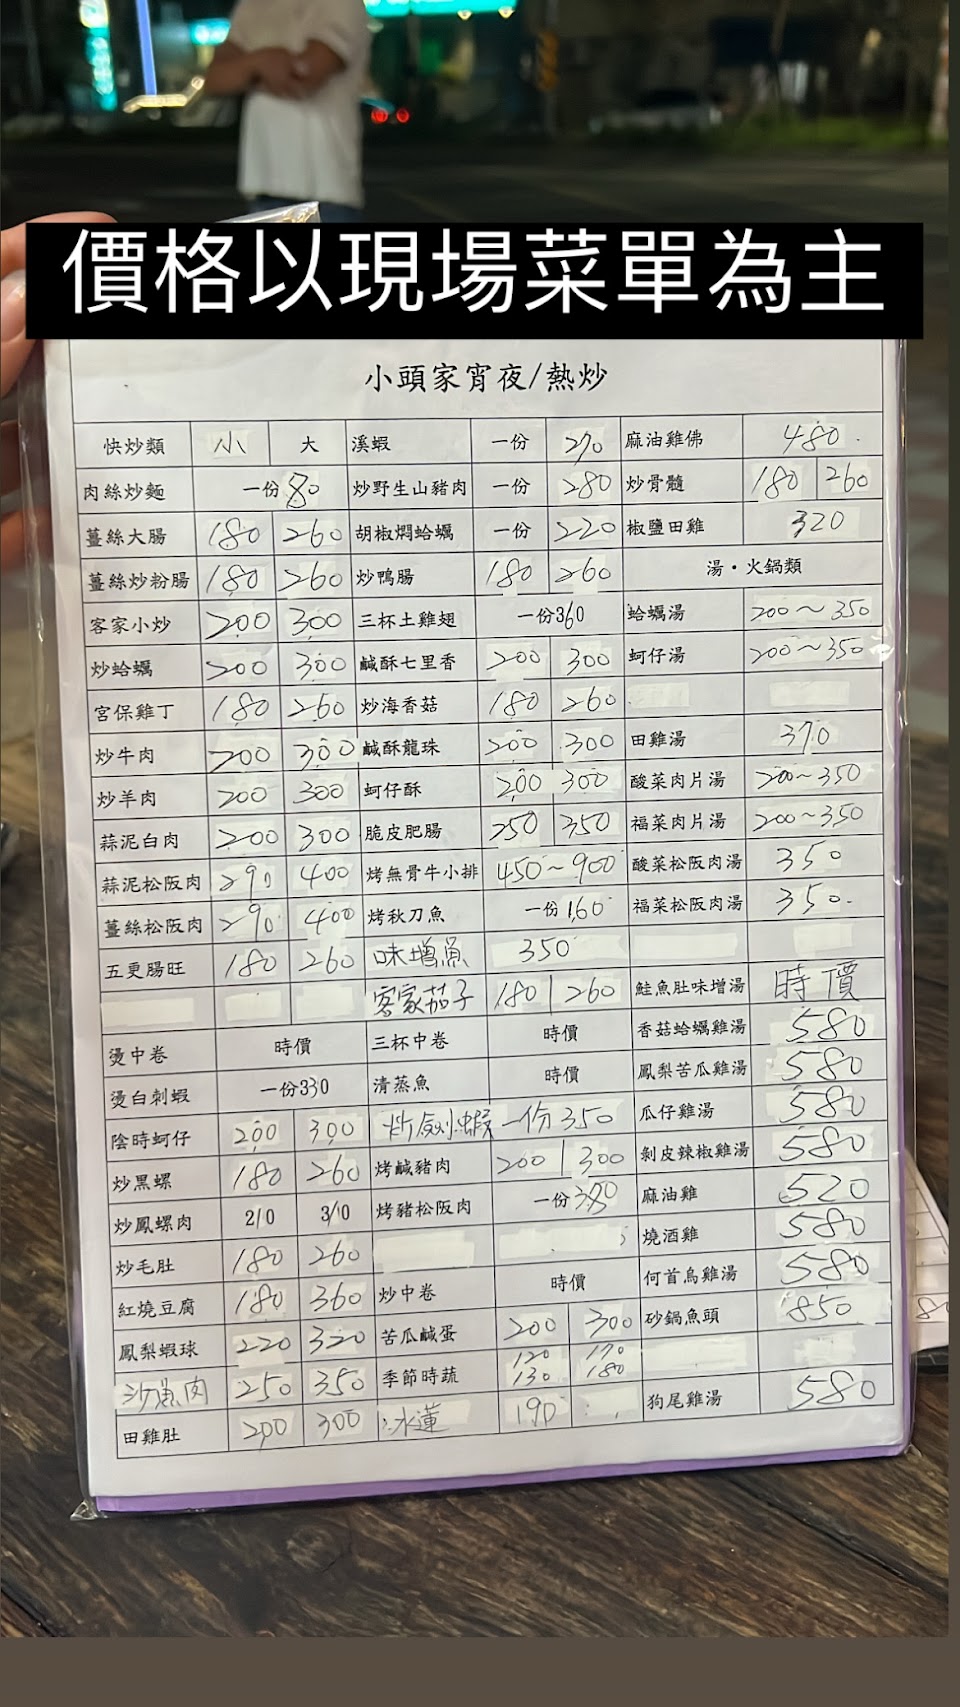 價格以現場菜單為主
小頭家宵夜/熱炒
快炒類 小 大 溪蝦 一份 270 麻油雞佛 480
肉絲炒麵 一份80 炒野生山豬肉 一份 280 炒骨髓 180 260
薑絲大腸 180 260 胡椒燜蛤蠣 一份 220 椒鹽田雞 320
薑絲炒粉腸 180 260 炒鴨腸 180 260 湯・火鍋類
客家小炒 200 300 三杯土雞翅 一份360 蛤蠣湯 200～350
炒蛤蠣 200 300 鹹酥七里香 200 300 蚵仔湯 200～350
宮保雞丁 180 260 炒海香菇 180 260
炒牛肉 200 300 鹹酥龍珠 200 300 田雞湯 370
炒羊肉 200 300 蚵仔酥 200 300 酸菜肉片湯 200～350
蒜泥白肉 200 300 脆皮肥腸 250 350 福菜肉片湯 200～350
蒜泥松阪肉 290 400 烤無骨牛小排 450～900 酸菜松阪肉湯 350
薑絲松阪肉 290 400 烤秋刀魚 一份160 福菜松阪肉湯 350
五更腸旺 180 260 味增魚 350
客家茄子 180 260 鮭魚肚味增湯 時價
燙中卷 時價 三杯中卷 時價 香菇蛤蠣雞湯 580
燙白刺蝦 一份330 清蒸魚 時價 鳳梨苦瓜雞湯 580
陰時蚵仔 200 300 炸劍蝦 一份 350 瓜仔雞湯 580
炒黑螺 180 260 烤鹹豬肉 200 300 剝皮辣椒雞湯 580
炒鳳螺肉 210 310 烤豬松阪肉 一份 麻油雞 520
炒毛肚 180 260 燒酒雞 580
紅燒豆腐 180 360 炒中卷 時價 何首烏雞湯 580
鳳梨蝦球 220 320 苦瓜鹹蛋 200 300 砂鍋魚頭 850
沙魚肉 250 350 季節時蔬 120 130 170 180
田雞肚 200 300 水蓮 190 狗尾雞湯 580